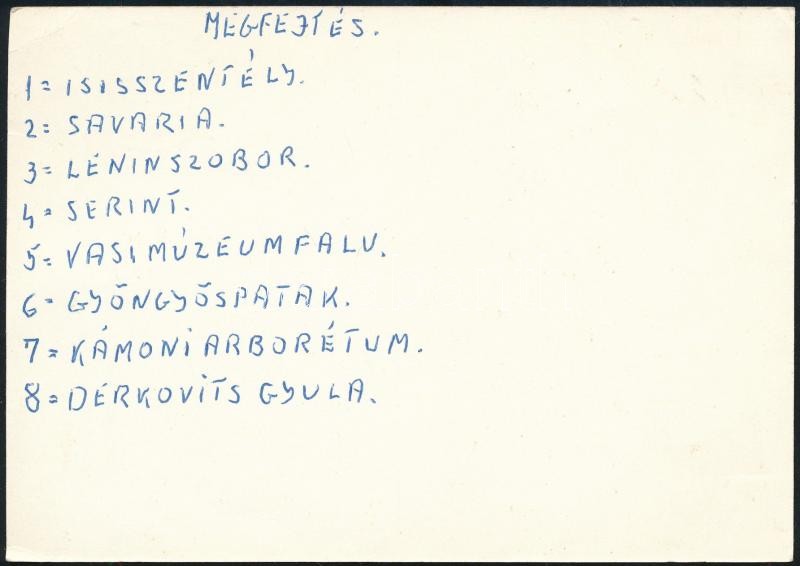 MEGFEJTÉS.
1= ISISSZENTÉLY.
2= SAVARIA.
3= LENINSZOBOR.
4= SERINT.
5= VASIMÚZEUMFALU.
6= GYÖNGYÖSPATAK.
7= KÁMONIARBORÉTUM.
8= DERKOVITS GYULA.